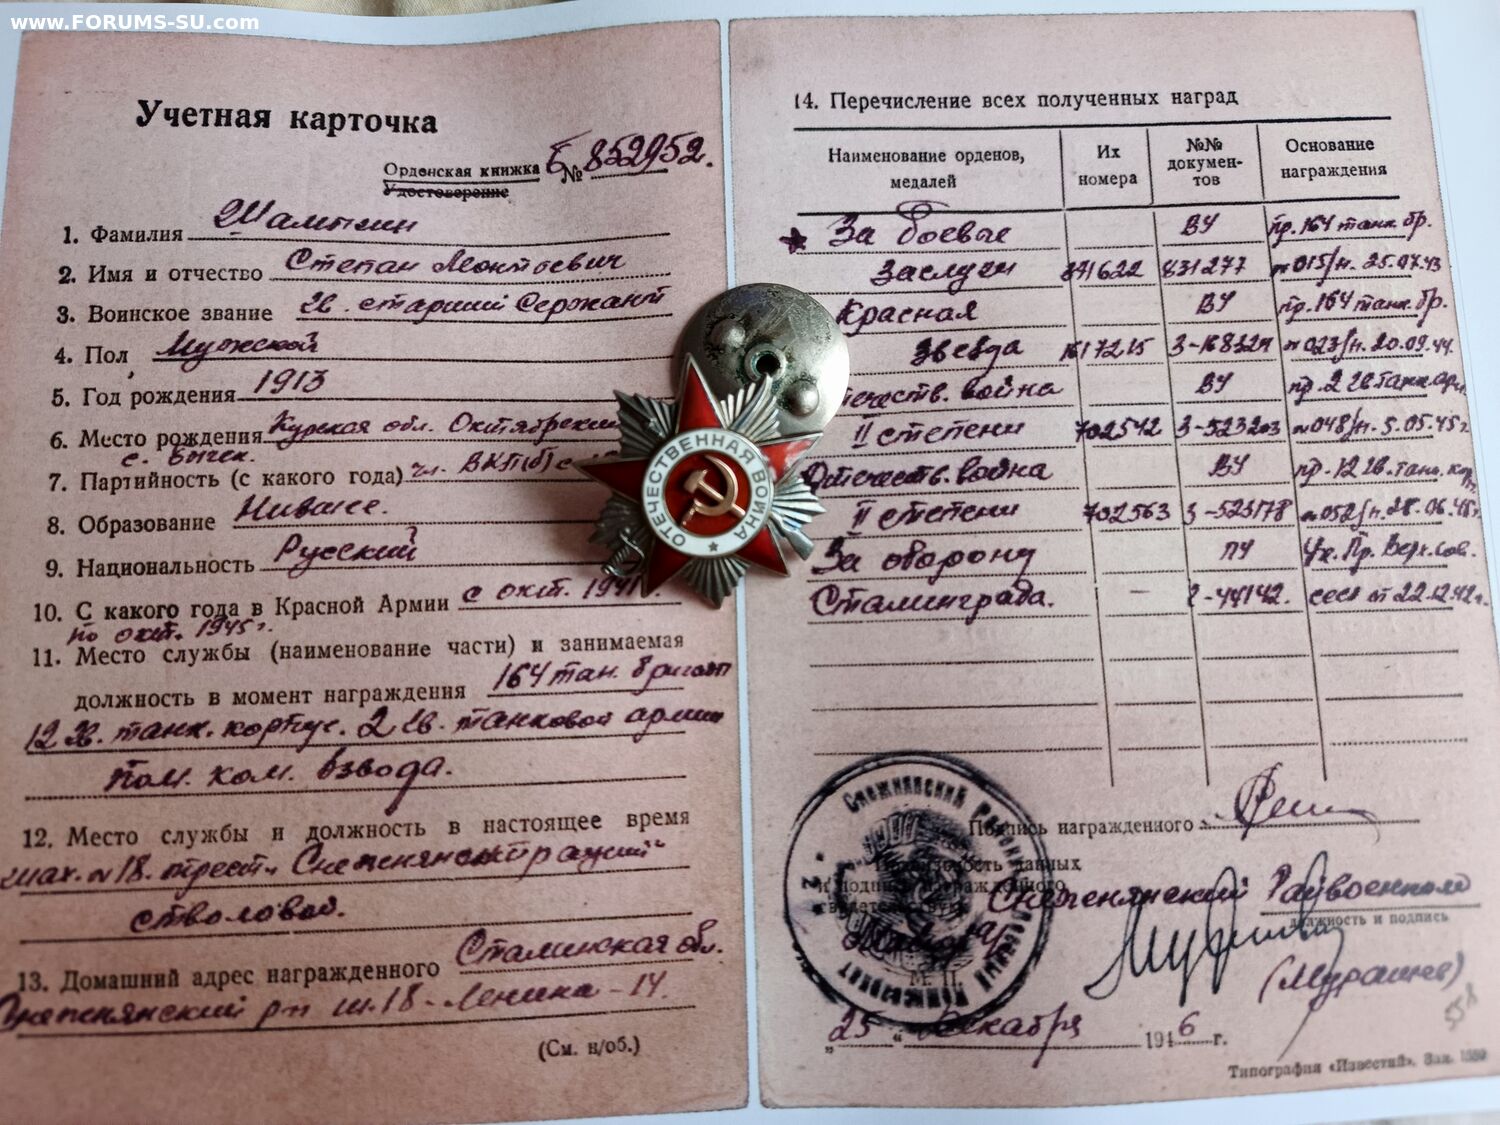 www.FORUMS-SU.com
Учетная карточка
Орденская книжка № Б 852952.
Удостоверение
1. Фамилия Шампкин
2. Имя и отчество Степан Леонтьевич
3. Воинское звание гв. старший сержант
4. Пол Мужской
5. Год рождения 1913
6. Место рождения Курская обл. Октябрьский
с.
7. Партийность (с какого года) чл. ВКП(б) с
8. Образование Низшее.
9. Национальность Русский
10. С какого года в Красной Армии с окт. 1941
по окт. 1945 г.
11. Место службы (наименование части) и занимаемая
должность в момент награждения 164 тан. бригады
12 Гв. танк. корпус. 2 гв. танковой армии
пом. ком. взвода.
12. Место службы и должность в настоящее время
шах. №18. трест
стволовой.
13. Домашний адрес награжденного Сталинская обл.
Снежнянский р-н ш. 18 - Ленина - 14.
(См. н/об.)
ОТЕЧЕСТВЕННАЯ ВОЙНА
14. Перечисление всех полученных наград
Наименование орденов, медалей
Их номера
№№ документов
Основание награждения
За боевые ВУ пр. 164 танк. бр.
заслуги 841622 831277 №015/н. 25.07.43
Красная ВУ пр. 164 танк. бр.
звезда 1617215 З-168324 №023/н. 20.09.44.
Отечеств. война ВУ пр. 2 гв танк арм.
II степени 702542 З-523203 №048/н. 5.05.45г
Отечеств. война ВУ пр. 12 гв. тан. кор
II степени 702563 З-523178 №052/н. 28.06.45г.
За оборону ПУ Ук. Пр. Верх. Сов.
Сталинграда. — 44142. СССР от 22.12.42г.
Подпись награжденного
Правильность данных
и подписи награжденного
свидетельствую
Снежнянский Райвоенком
должность и подпись
М. П.
(Мурашев)
„25" декабря 1946 г.
558
Типография «Известий». Зак. 1559